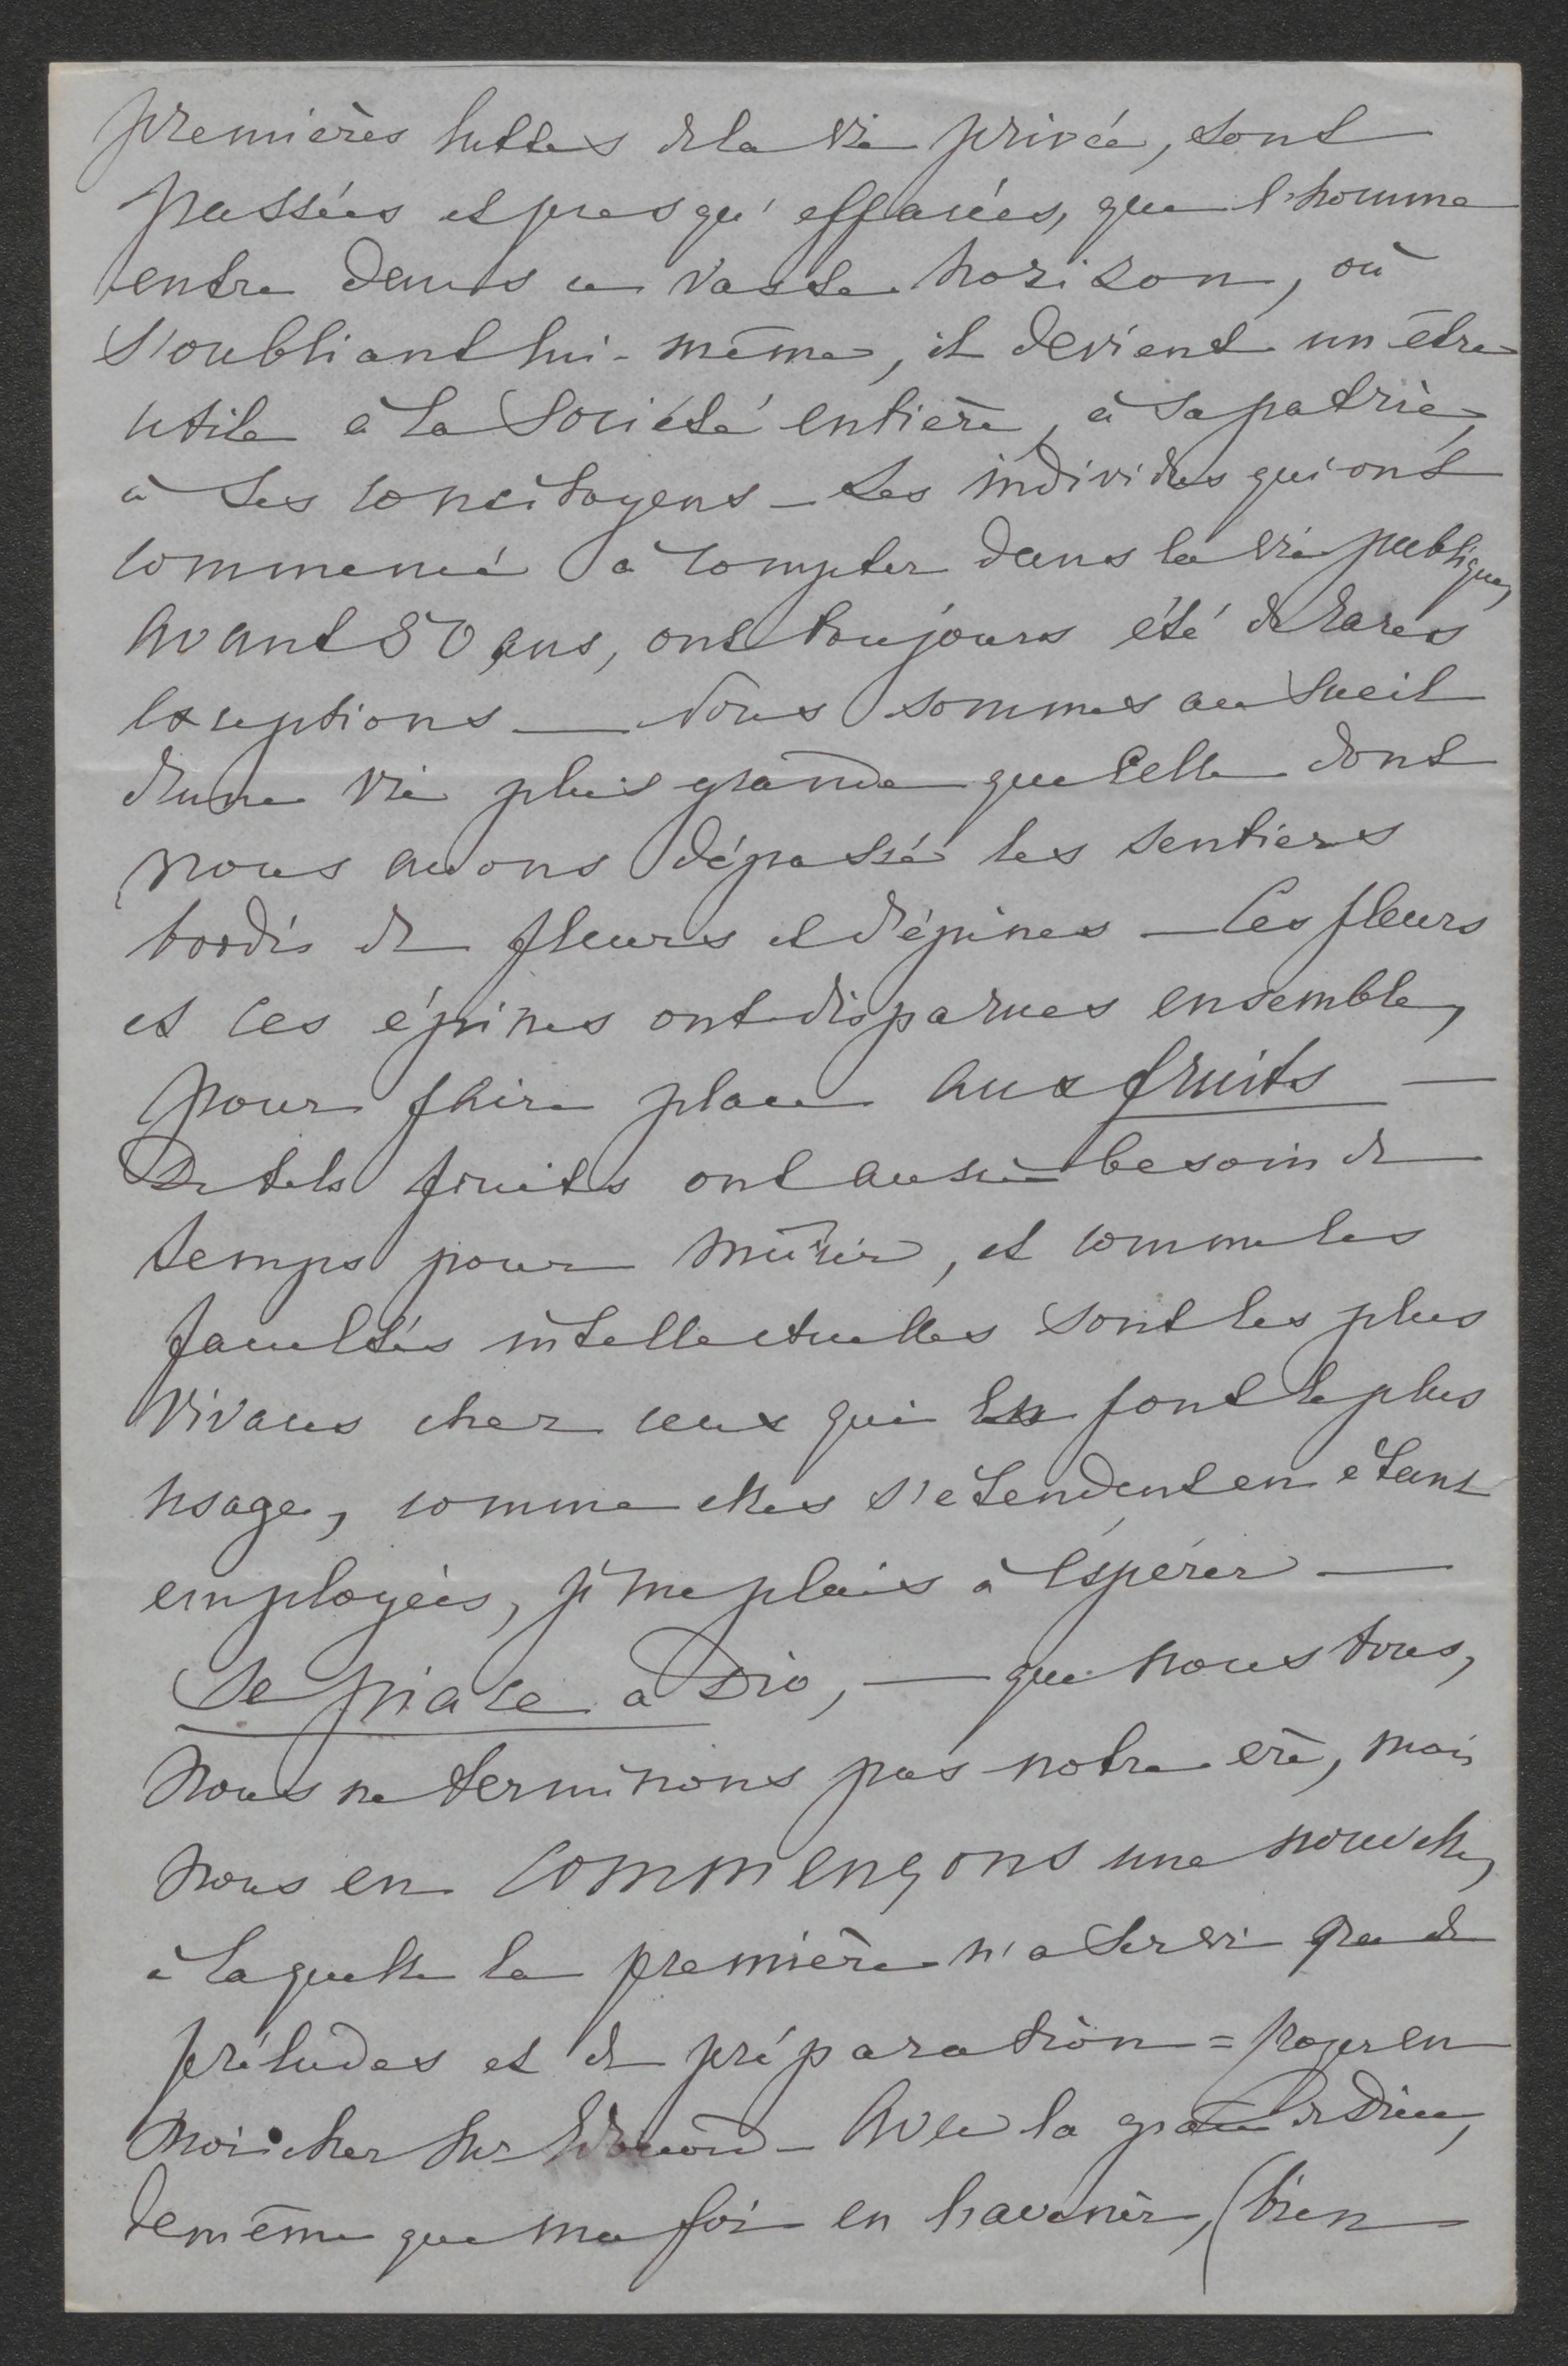 premières luttes de la vie privée, sont
passées et presqu'effacées, que l'homme
entre dans ce vaste horizon, où
s'oubliant lui-même, il devient un être
utile à la société entière, à sa patrie,
à ses concitoyens _ Les individus qui ont
commencé à compter dans la vie publique,
avant 50 ans, ont toujours été de rares
exceptions __ Nous sommes au sueil
d'une vie plus grande que celle dont
nous avons dépassé les sentiers
bordés de fleurs et d'épines _ Ces fleurs
et ces épines ont disparues ensemble,
pour faire place aux fruits —
De tels fruits ont aussi besoin de
temps pour mûrir, et comme les
facultés intellectuelles sont les plus
vivaces chez ceux qui en font le plus
usage, comme elles s'étendent en étant
employées, je me plais à éspérer —
Se piace a Dio, — que nous tous,
nous ne terminons pas notre ère, mais
nous en commençons une nouvelle,
à laquelle la première n'a servi que de
préludes et de préparation = en
moi cher _ Avec la grâce de Dieu,
de même que ma foi en l'avenir, (bien